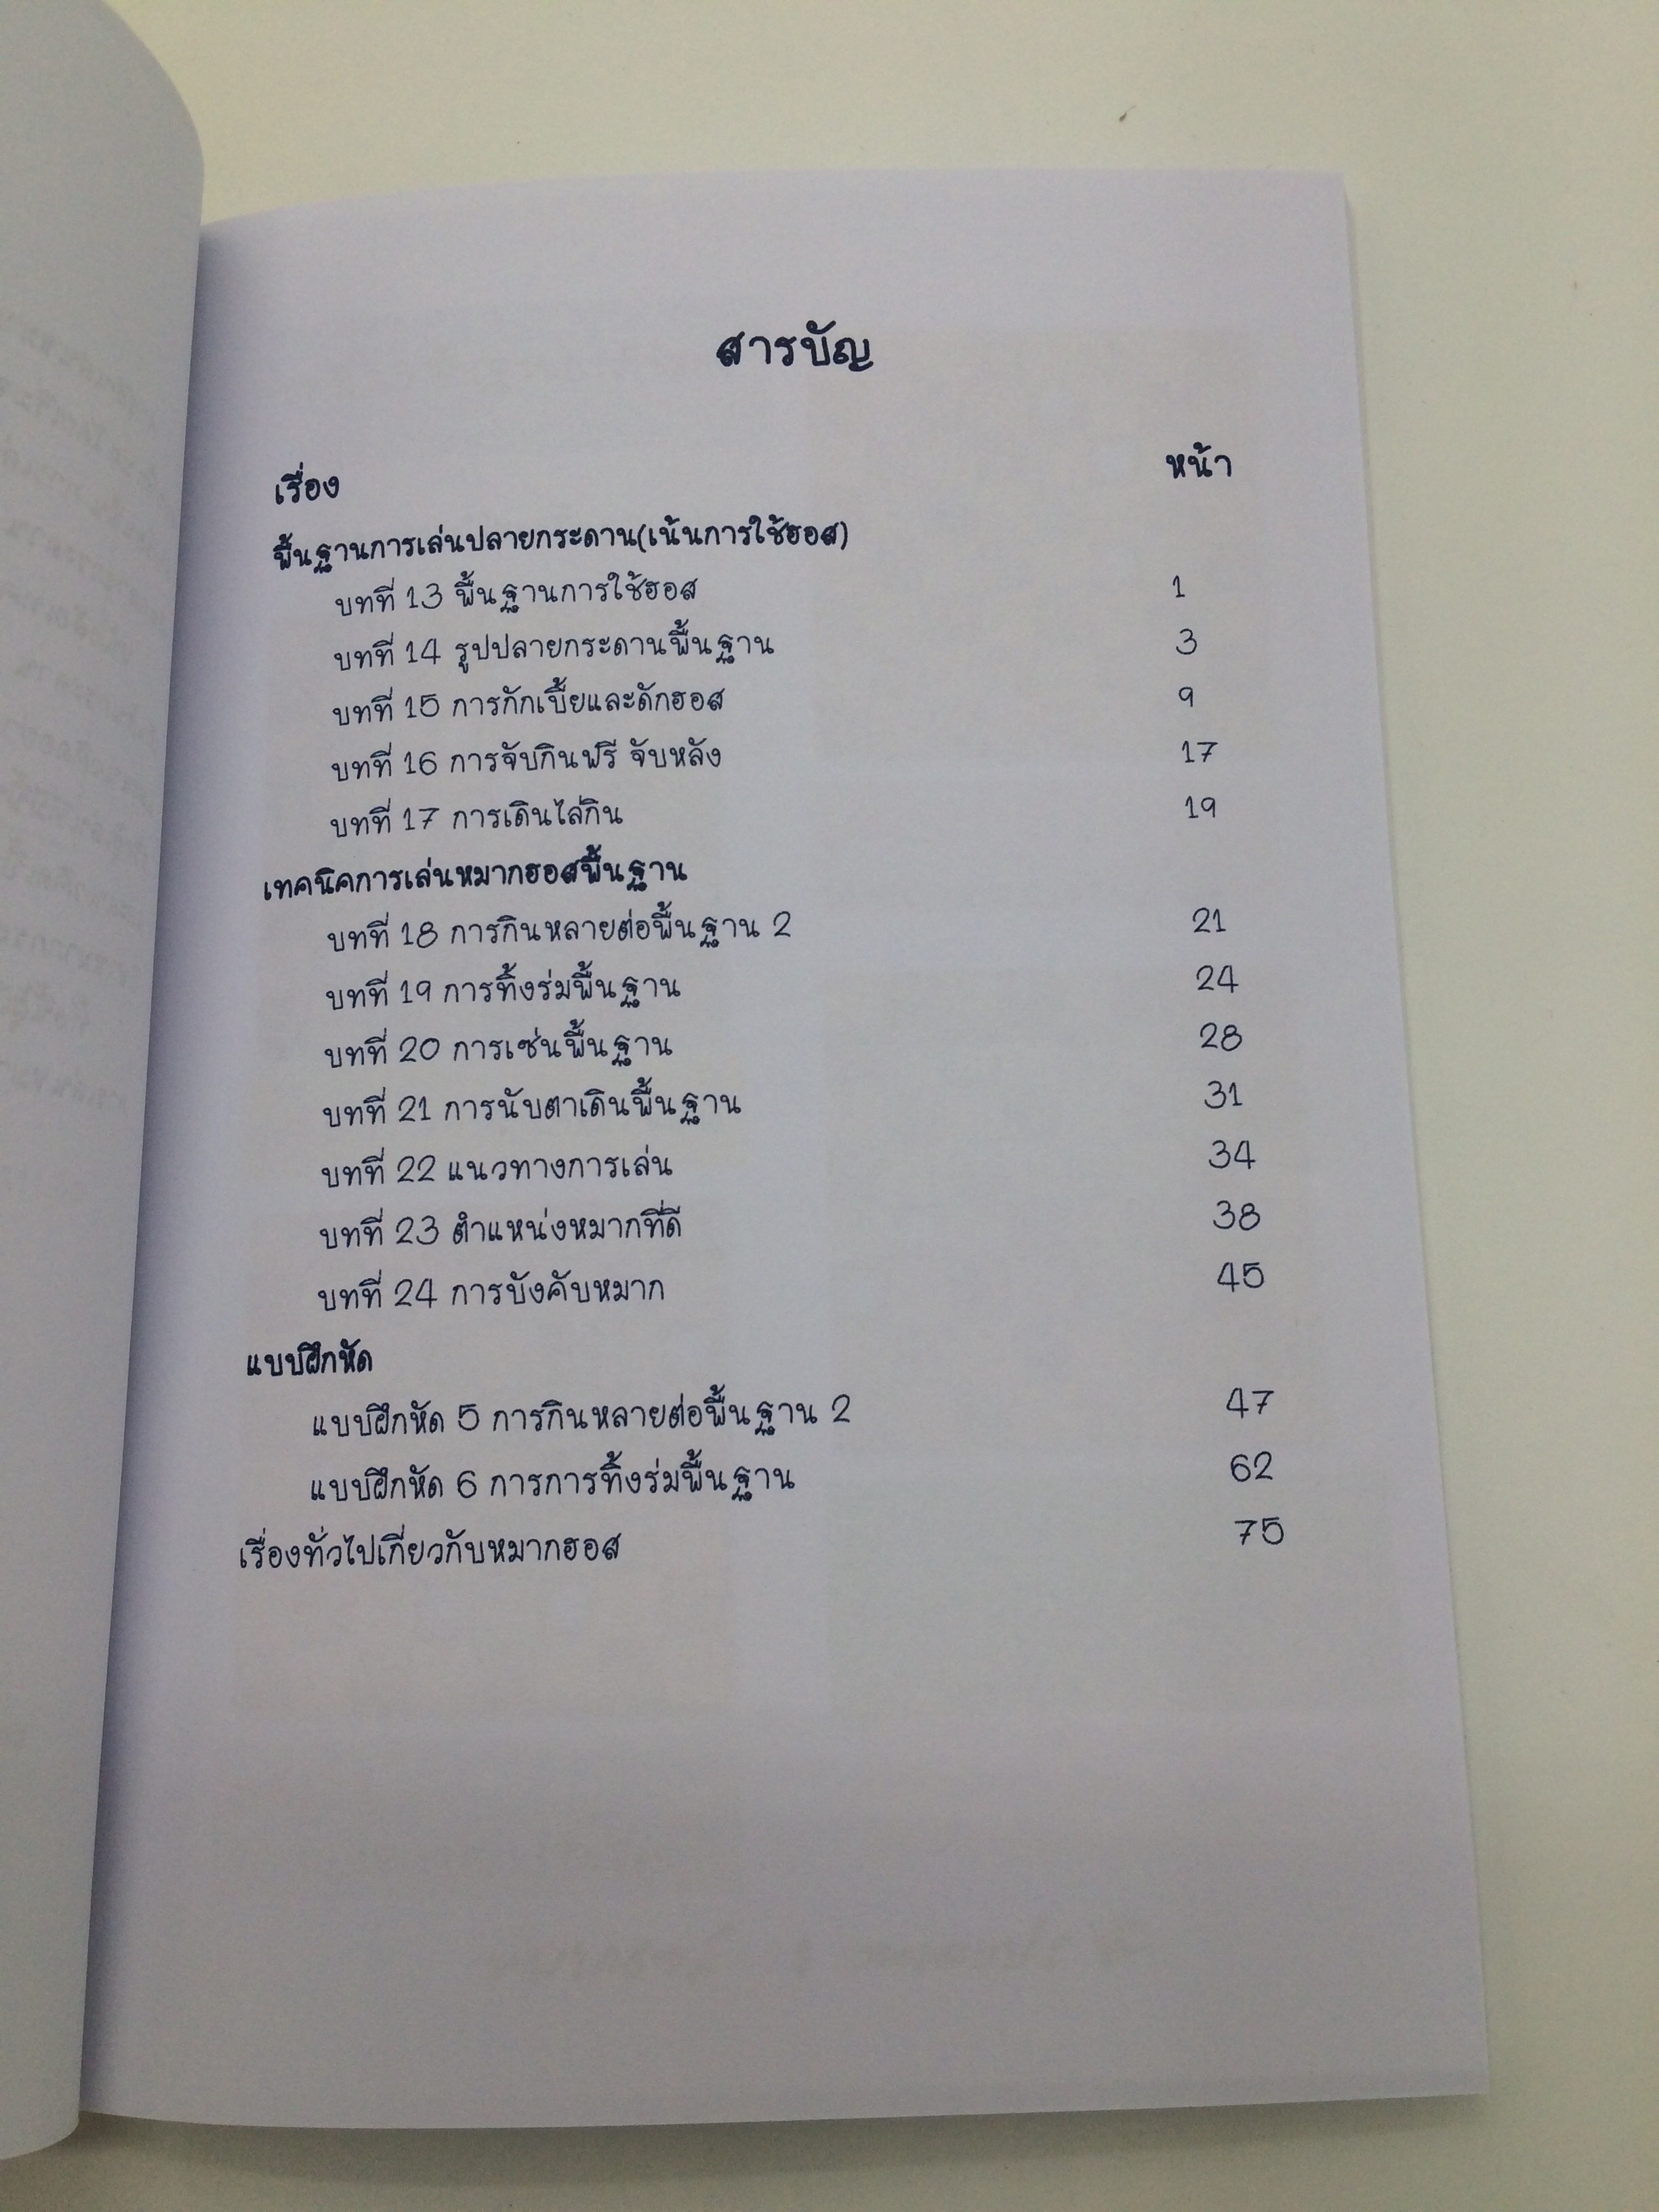 สารบัญ
เรื่อง หน้า
พื้นฐานการเล่นปลายกระดาน(เน้นการใช้ฮอส)
บทที่ 13 พื้นฐานการใช้ฮอส 1
บทที่ 14 รูปปลายกระดานพื้นฐาน 3
บทที่ 15 การกักเบี้ยและดักฮอส 9
บทที่ 16 การจับกินฟรี จับหลัง 17
บทที่ 17 การเดินไล่กิน 19
เทคนิคการเล่นหมากฮอสพื้นฐาน
บทที่ 18 การกินหลายต่อพื้นฐาน 2 21
บทที่ 19 การทิ้งร่มพื้นฐาน 24
บทที่ 20 การเซ่นพื้นฐาน 28
บทที่ 21 การนับตาเดินพื้นฐาน 31
บทที่ 22 แนวทางการเล่น 34
บทที่ 23 ตำแหน่งหมากที่ดี 38
บทที่ 24 การบังคับหมาก 45
แบบฝึกหัด
แบบฝึกหัด 5 การกินหลายต่อพื้นฐาน 2 47
แบบฝึกหัด 6 การการทิ้งร่มพื้นฐาน 62
เรื่องทั่วไปเกี่ยวกับหมากฮอส 75